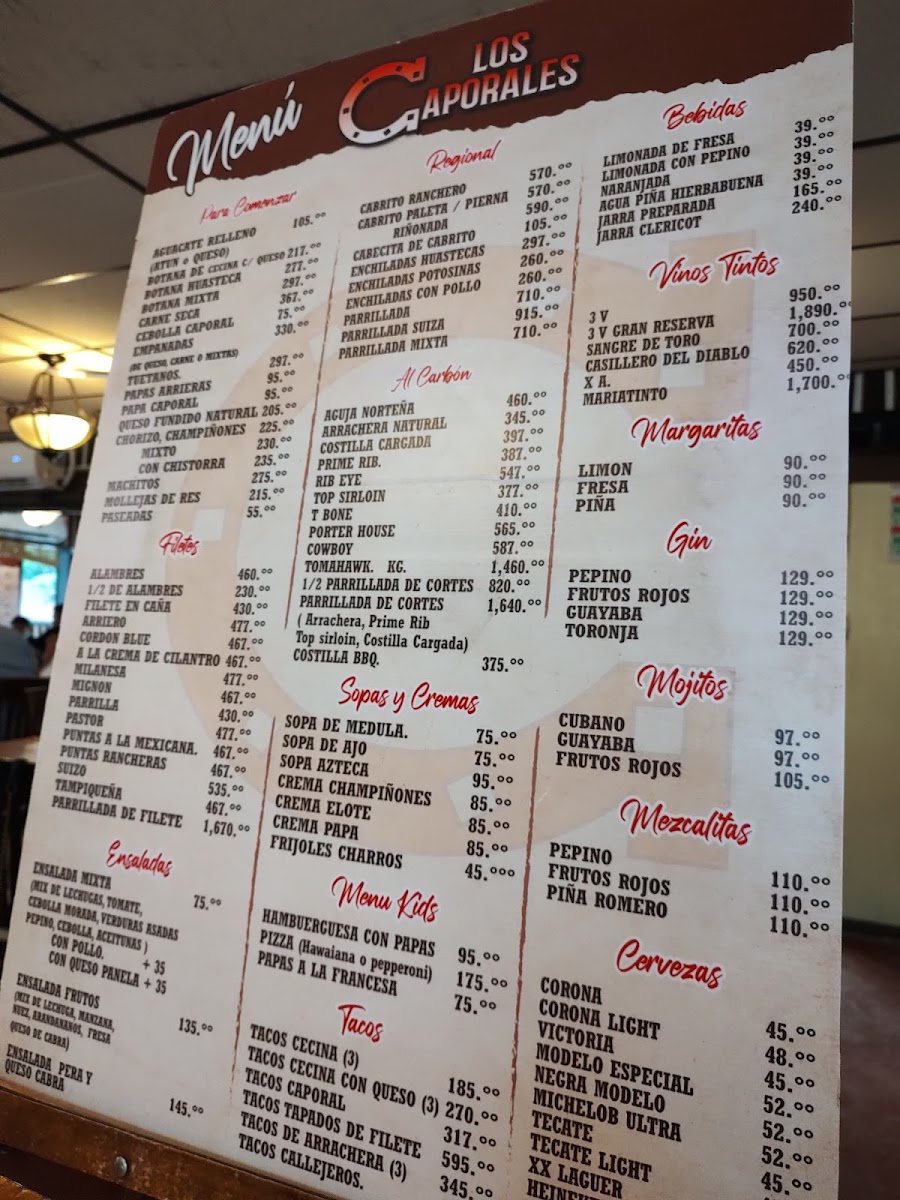 Menú
LOS
CAPORALES
Para Comenzar
AGUACATE RELLENO 105.00
(ATUN o QUESO)
BOTANA DE CECINA C/ QUESO 217.00
BOTANA HUASTECA 277.00
BOTANA MIXTA 297.00
CARNE SECA 367.00
CEBOLLA CAPORAL 75.00
EMPANADAS 330.00
(DE QUESO, CARNE O MIXTAS)
TUETANOS. 297.00
PAPAS ARRIERAS 95.00
PAPA CAPORAL 95.00
QUESO FUNDIDO NATURAL 205.00
CHORIZO, CHAMPIÑONES 225.00
MIXTO 230.00
CON CHISTORRA 235.00
MACHITOS 275.00
MOLLEJAS DE RES 215.00
PASEADAS 55.00
Filetes
ALAMBRES 460.00
1/2 DE ALAMBRES 230.00
FILETE EN CAÑA 430.00
ARRIERO 477.00
CORDON BLUE 467.00
A LA CREMA DE CILANTRO 467.00
MILANESA 477.00
MIGNON 467.00
PARRILLA 430.00
PASTOR 477.00
PUNTAS A LA MEXICANA. 467.00
PUNTAS RANCHERAS 467.00
SUIZO 535.00
TAMPIQUEÑA 467.00
PARRILLADA DE FILETE 1,670.00
Ensaladas
ENSALADA MIXTA 75.00
(MIX DE LECHUGAS, TOMATE,
CEBOLLA MORADA, VERDURAS ASADAS
PEPINO, CEBOLLA, ACEITUNAS )
CON POLLO. + 35
CON QUESO PANELA + 35
ENSALADA FRUTOS 135.00
(MIX DE LECHUGA, MANZANA,
NUEZ, ARANDANANOS, FRESA
QUESO DE CABRA)
ENSALADA PERA Y
QUESO CABRA 145.00
Regional
CABRITO RANCHERO 570.00
CABRITO PALETA / PIERNA 570.00
RIÑONADA 590.00
CABECITA DE CABRITO 105.00
ENCHILADAS HUASTECAS 297.00
ENCHILADAS POTOSINAS 260.00
ENCHILADAS CON POLLO 260.00
PARRILLADA 710.00
PARRILLADA SUIZA 915.00
PARRILLADA MIXTA 710.00
Al Carbón
AGUJA NORTEÑA 460.00
ARRACHERA NATURAL 345.00
COSTILLA CARGADA 397.00
PRIME RIB. 387.00
RIB EYE 547.00
TOP SIRLOIN 377.00
T BONE 410.00
PORTER HOUSE 565.00
COWBOY 587.00
TOMAHAWK. KG. 1,460.00
1/2 PARRILLADA DE CORTES 820.00
PARRILLADA DE CORTES 1,640.00
( Arrachera, Prime Rib
Top sirloin, Costilla Cargada)
COSTILLA BBQ. 375.00
Sopas y Cremas
SOPA DE MEDULA. 75.00
SOPA DE AJO 75.00
SOPA AZTECA 95.00
CREMA CHAMPIÑONES 85.00
CREMA ELOTE 85.00
CREMA PAPA 85.00
FRIJOLES CHARROS 45.000
Menu Kids
HAMBUERGUESA CON PAPAS 95.00
PIZZA (Hawaiana o pepperoni) 175.00
PAPAS A LA FRANCESA 75.00
Tacos
TACOS CECINA (3) 185.00
TACOS CECINA CON QUESO (3) 270.00
TACOS CAPORAL 317.00
TACOS TAPADOS DE FILETE 595.00
TACOS DE ARRACHERA (3) 345.00
TACOS CALLEJEROS.
Bebidas
LIMONADA DE FRESA 39.00
LIMONADA CON PEPINO 39.00
NARANJADA 39.00
AGUA PIÑA HIERBABUENA 39.00
JARRA PREPARADA 165.00
JARRA CLERICOT 240.00
Vinos Tintos
3 V 950.00
3 V GRAN RESERVA 1,890.00
SANGRE DE TORO 700.00
CASILLERO DEL DIABLO 620.00
X A. 450.00
MARIATINTO 1,700.00
Margaritas
LIMON 90.00
FRESA 90.00
PIÑA 90.00
Gin
PEPINO 129.00
FRUTOS ROJOS 129.00
GUAYABA 129.00
TORONJA 129.00
Mojitos
CUBANO 97.00
GUAYABA 97.00
FRUTOS ROJOS 105.00
Mezcalitas
PEPINO 110.00
FRUTOS ROJOS 110.00
PIÑA ROMERO 110.00
Cervezas
CORONA 45.00
CORONA LIGHT 48.00
VICTORIA 45.00
MODELO ESPECIAL 52.00
NEGRA MODELO 52.00
MICHELOB ULTRA 52.00
TECATE 45.00
TECATE LIGHT
XX LAGUER